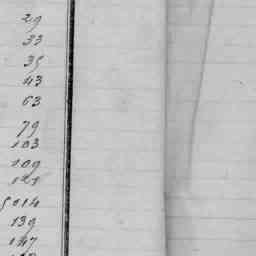 29
33
35
43
63
79
103
109
121
139
147